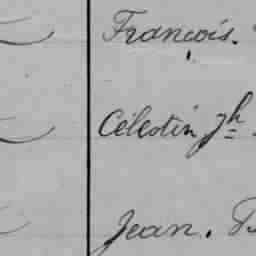 François.
Célestin Jh
Jean.